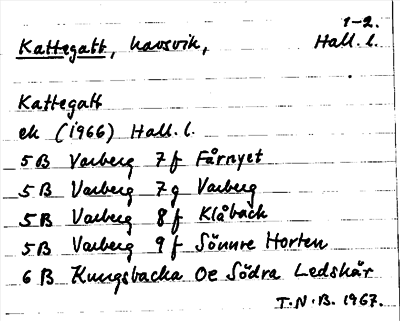 1-2.
Kattegatt, havsvik, Hall. l.
Kattegatt
ek (1966) Hall. l.
5 B Varberg 7 f Fårnyet
5 B Varberg 7 g Varberg
5 B Varberg 8 f Klåback
5 B Varberg 9 f Sönnre Horten
6 B Kungsbacka 0e Södra Ledskär
T.N.B. 1967.